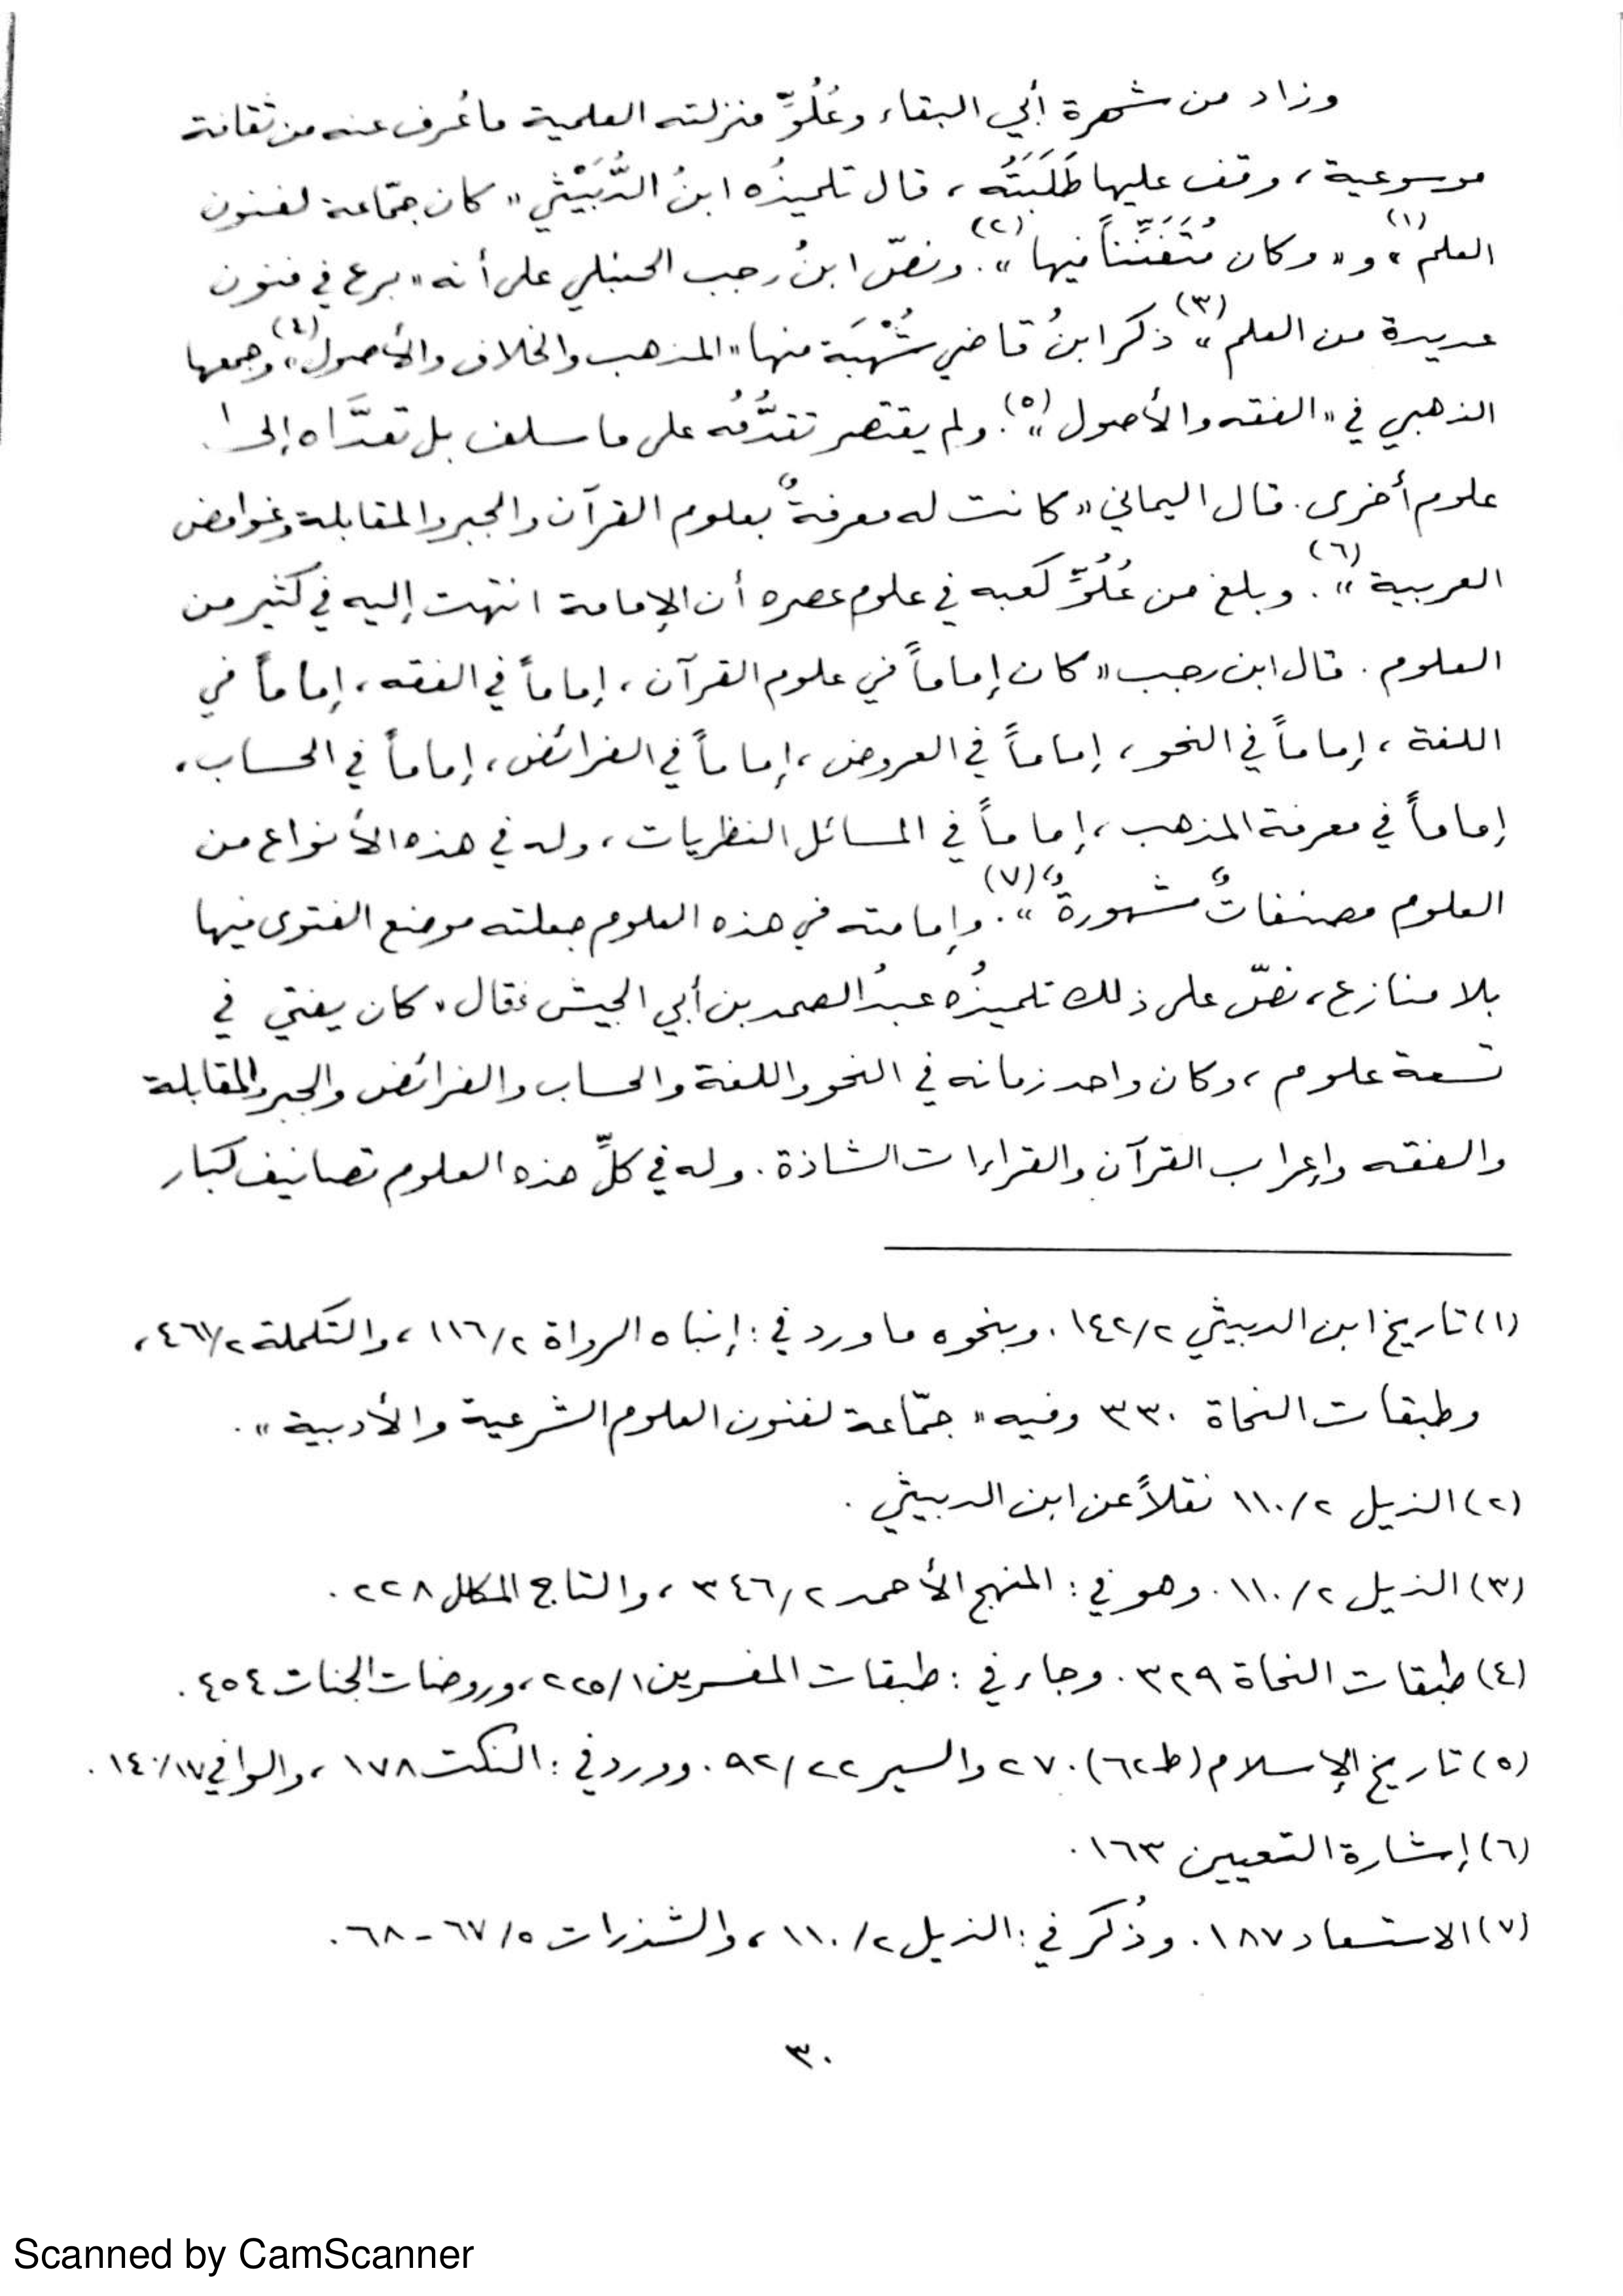 وزاد من شهرة أبي البقاء وعُلُوِّ منزلته العلمية ما عُرف عنه من ثقافة
موسوعية، وقف عليها طَلَبَتُه، قال تلميذُه ابنُ الدُّبَيْثي «كان جمّاعة لفنون
العلم»(١) و«وكان مُتَفَنِّناً فيها»(٢). ونصّ ابنُ رجب الحنبلي على أنه «برع في فنون
عديدة من العلم»(٣) ذكر ابنُ قاضي شُهْبَة منها «المذهب والخلاف والأصول»(٤)، وجمعها
الذهبي في «الفقه والأصول»(٥). ولم يقتصر تقدُّمُه على ما سلف بل تعدَّاه إلى
علوم أخرى. قال اليماني «كانت له معرفةٌ بعلوم القرآن والجبر والمقابلة وغوامض
العربية»(٦). وبلغ من عُلُوِّ كعبه في علوم عصره أن الإمامة انتهت إليه في كثير من
العلوم. قال ابن رجب «كان إماماً في علوم القرآن، إماماً في الفقه، إماماً في
اللغة، إماماً في النحو، إماماً في العروض، إماماً في الفرائض، إماماً في الحساب،
إماماً في معرفة المذهب، إماماً في المسائل النظريات، وله في هذه الأنواع من
العلوم مصنفاتٌ مشهورةٌ»(٧). وإمامته في هذه العلوم جعلته موضع الفتوى فيها
بلا منازع، نصّ على ذلك تلميذُه عبدُ الصمد بن أبي الجيش فقال «كان يفتي في
تسعة علوم، وكان واحد زمانه في النحو واللغة والحساب والفرائض والجبر والمقابلة
والفقه وإعراب القرآن والقراءات الشاذة. وله في كلِّ هذه العلوم تصانيف كبار
(١) تاريخ ابن الدبيثي ١٤٢/٢. وبنحوه ما ورد في: إنباه الرواة ١١٦/٢، والتكملة ٤٦١/٢،
وطبقات النحاة ٣٣٠ وفيه «جمّاعة لفنون العلوم الشرعية والأدبية».
(٢) الذيل ١١٠/٢ نقلاً عن ابن الدبيثي.
(٣) الذيل ١١٠/٢. وهو في: المنهج الأحمد ٣٤٦/٢، والتاج المكلل ٢٢٨.
(٤) طبقات النحاة ٣٢٩. وجاء في: طبقات المفسرين ٢٢٥/١، وروضات الجنات ٤٥٤.
(٥) تاريخ الإسلام (ط ٦٢) ٢٧٠ والسير ٩٢/٢٢. وورد في: النكت ١٧٨، والوافي ١٤٠/١٧.
(٦) إشارة التعيين ١٦٣.
(٧) الاستسعاد ١٨٧. وذُكر في: الذيل ١١٠/٢، والشذرات ٦٧/٥ - ٦٨.
٣٠
Scanned by CamScanner